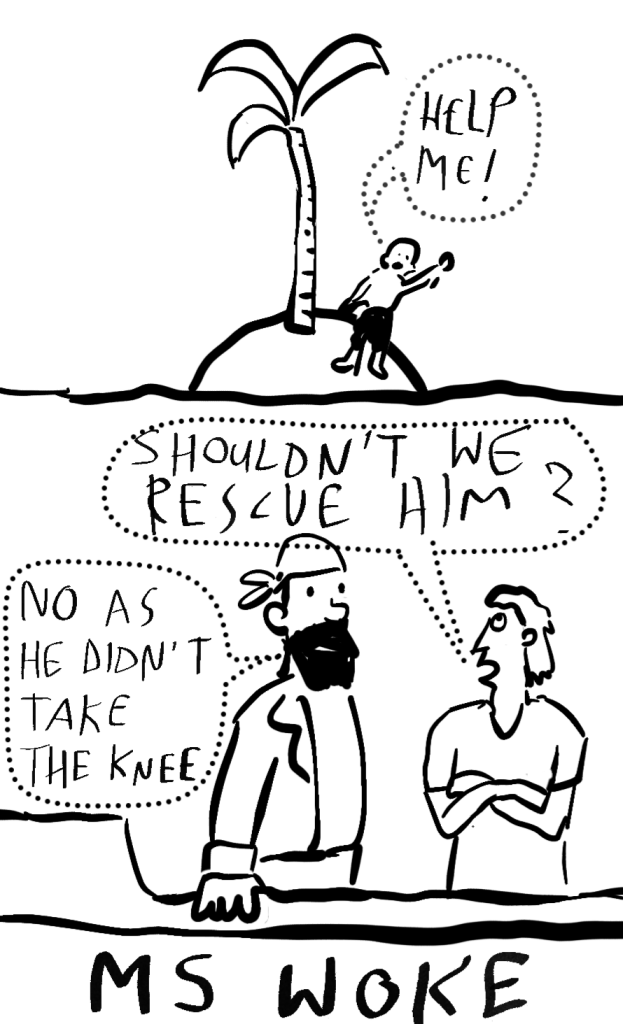 HELP
ME!
SHOULDN'T WE
RESCUE HIM?
NO AS
HE DIDN'T
TAKE
THE KNEE
MS WOKE